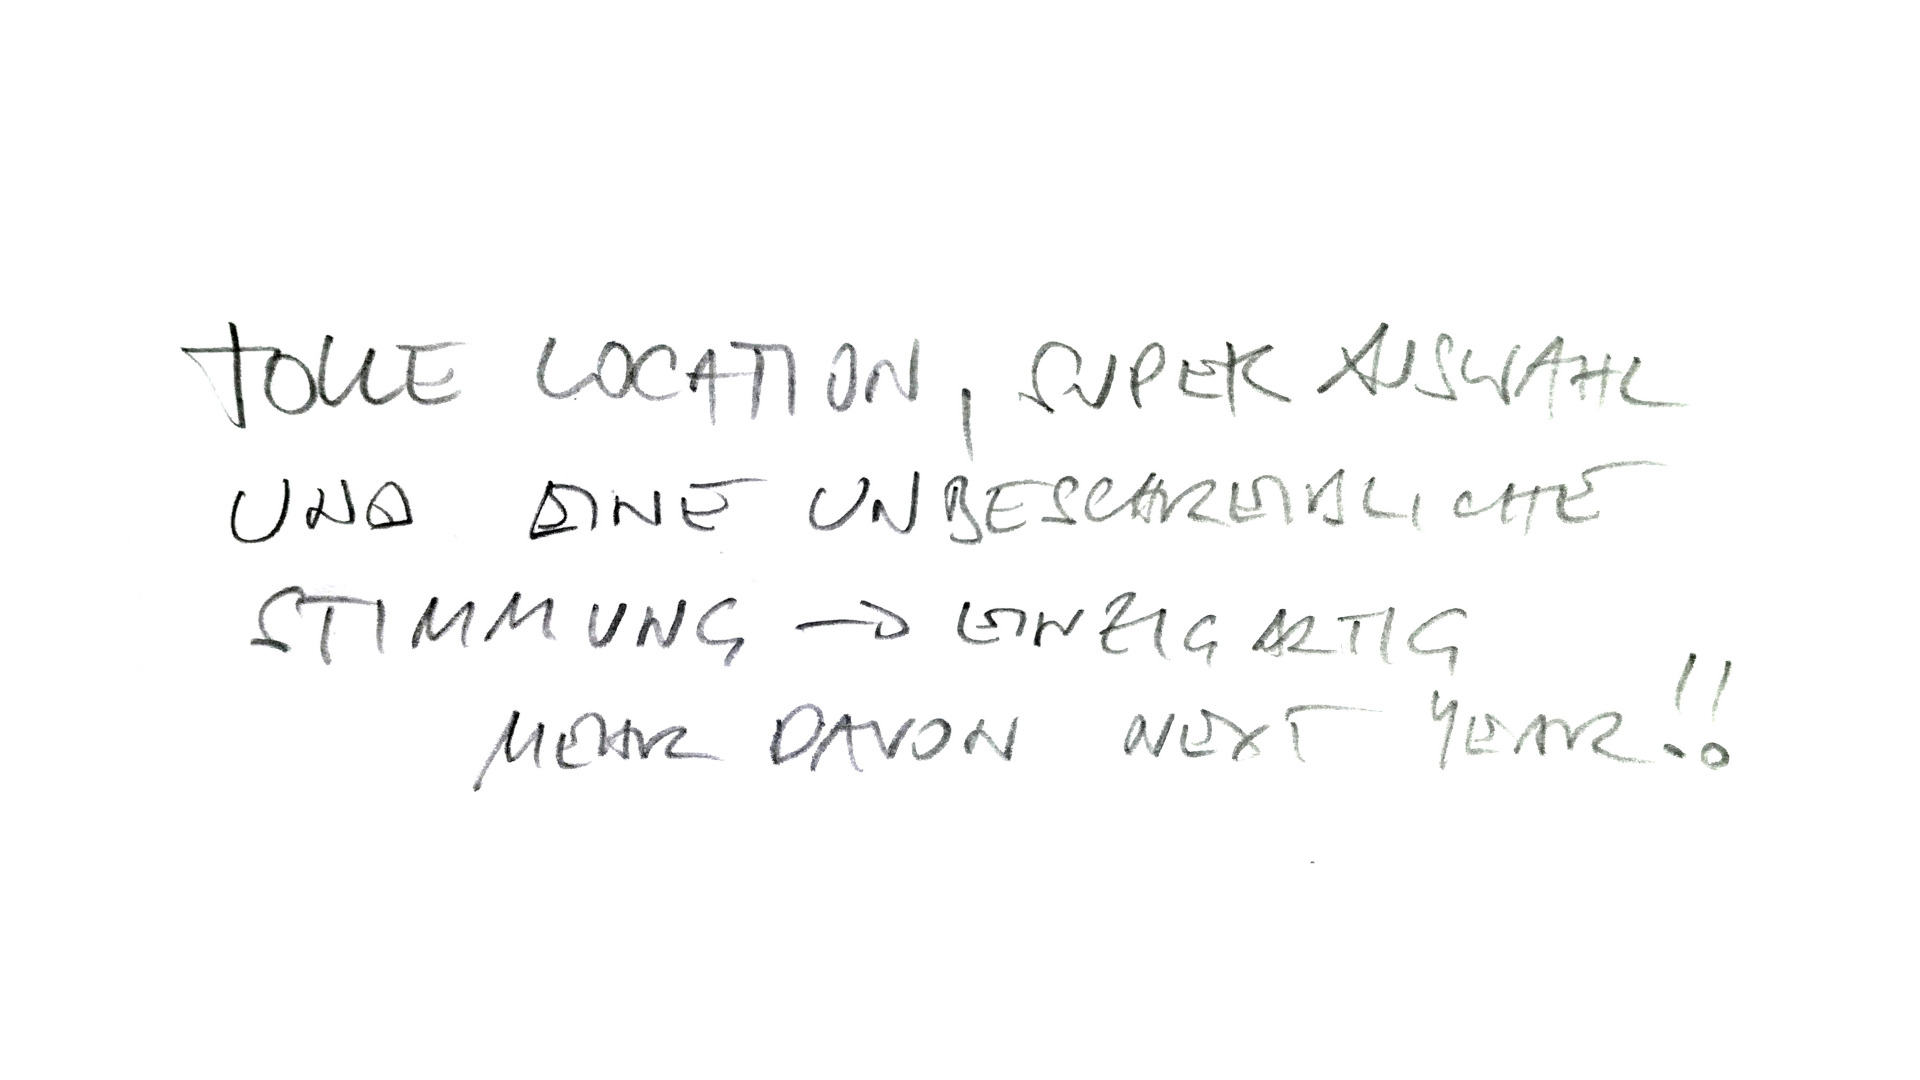 TOLLE LOCATION, SUPER AUSWAHL
UND EINE UNBESCHREIBLICHE
STIMMUNG → EINZIGARTIG
MEHR DAVON NEXT YEAR!!